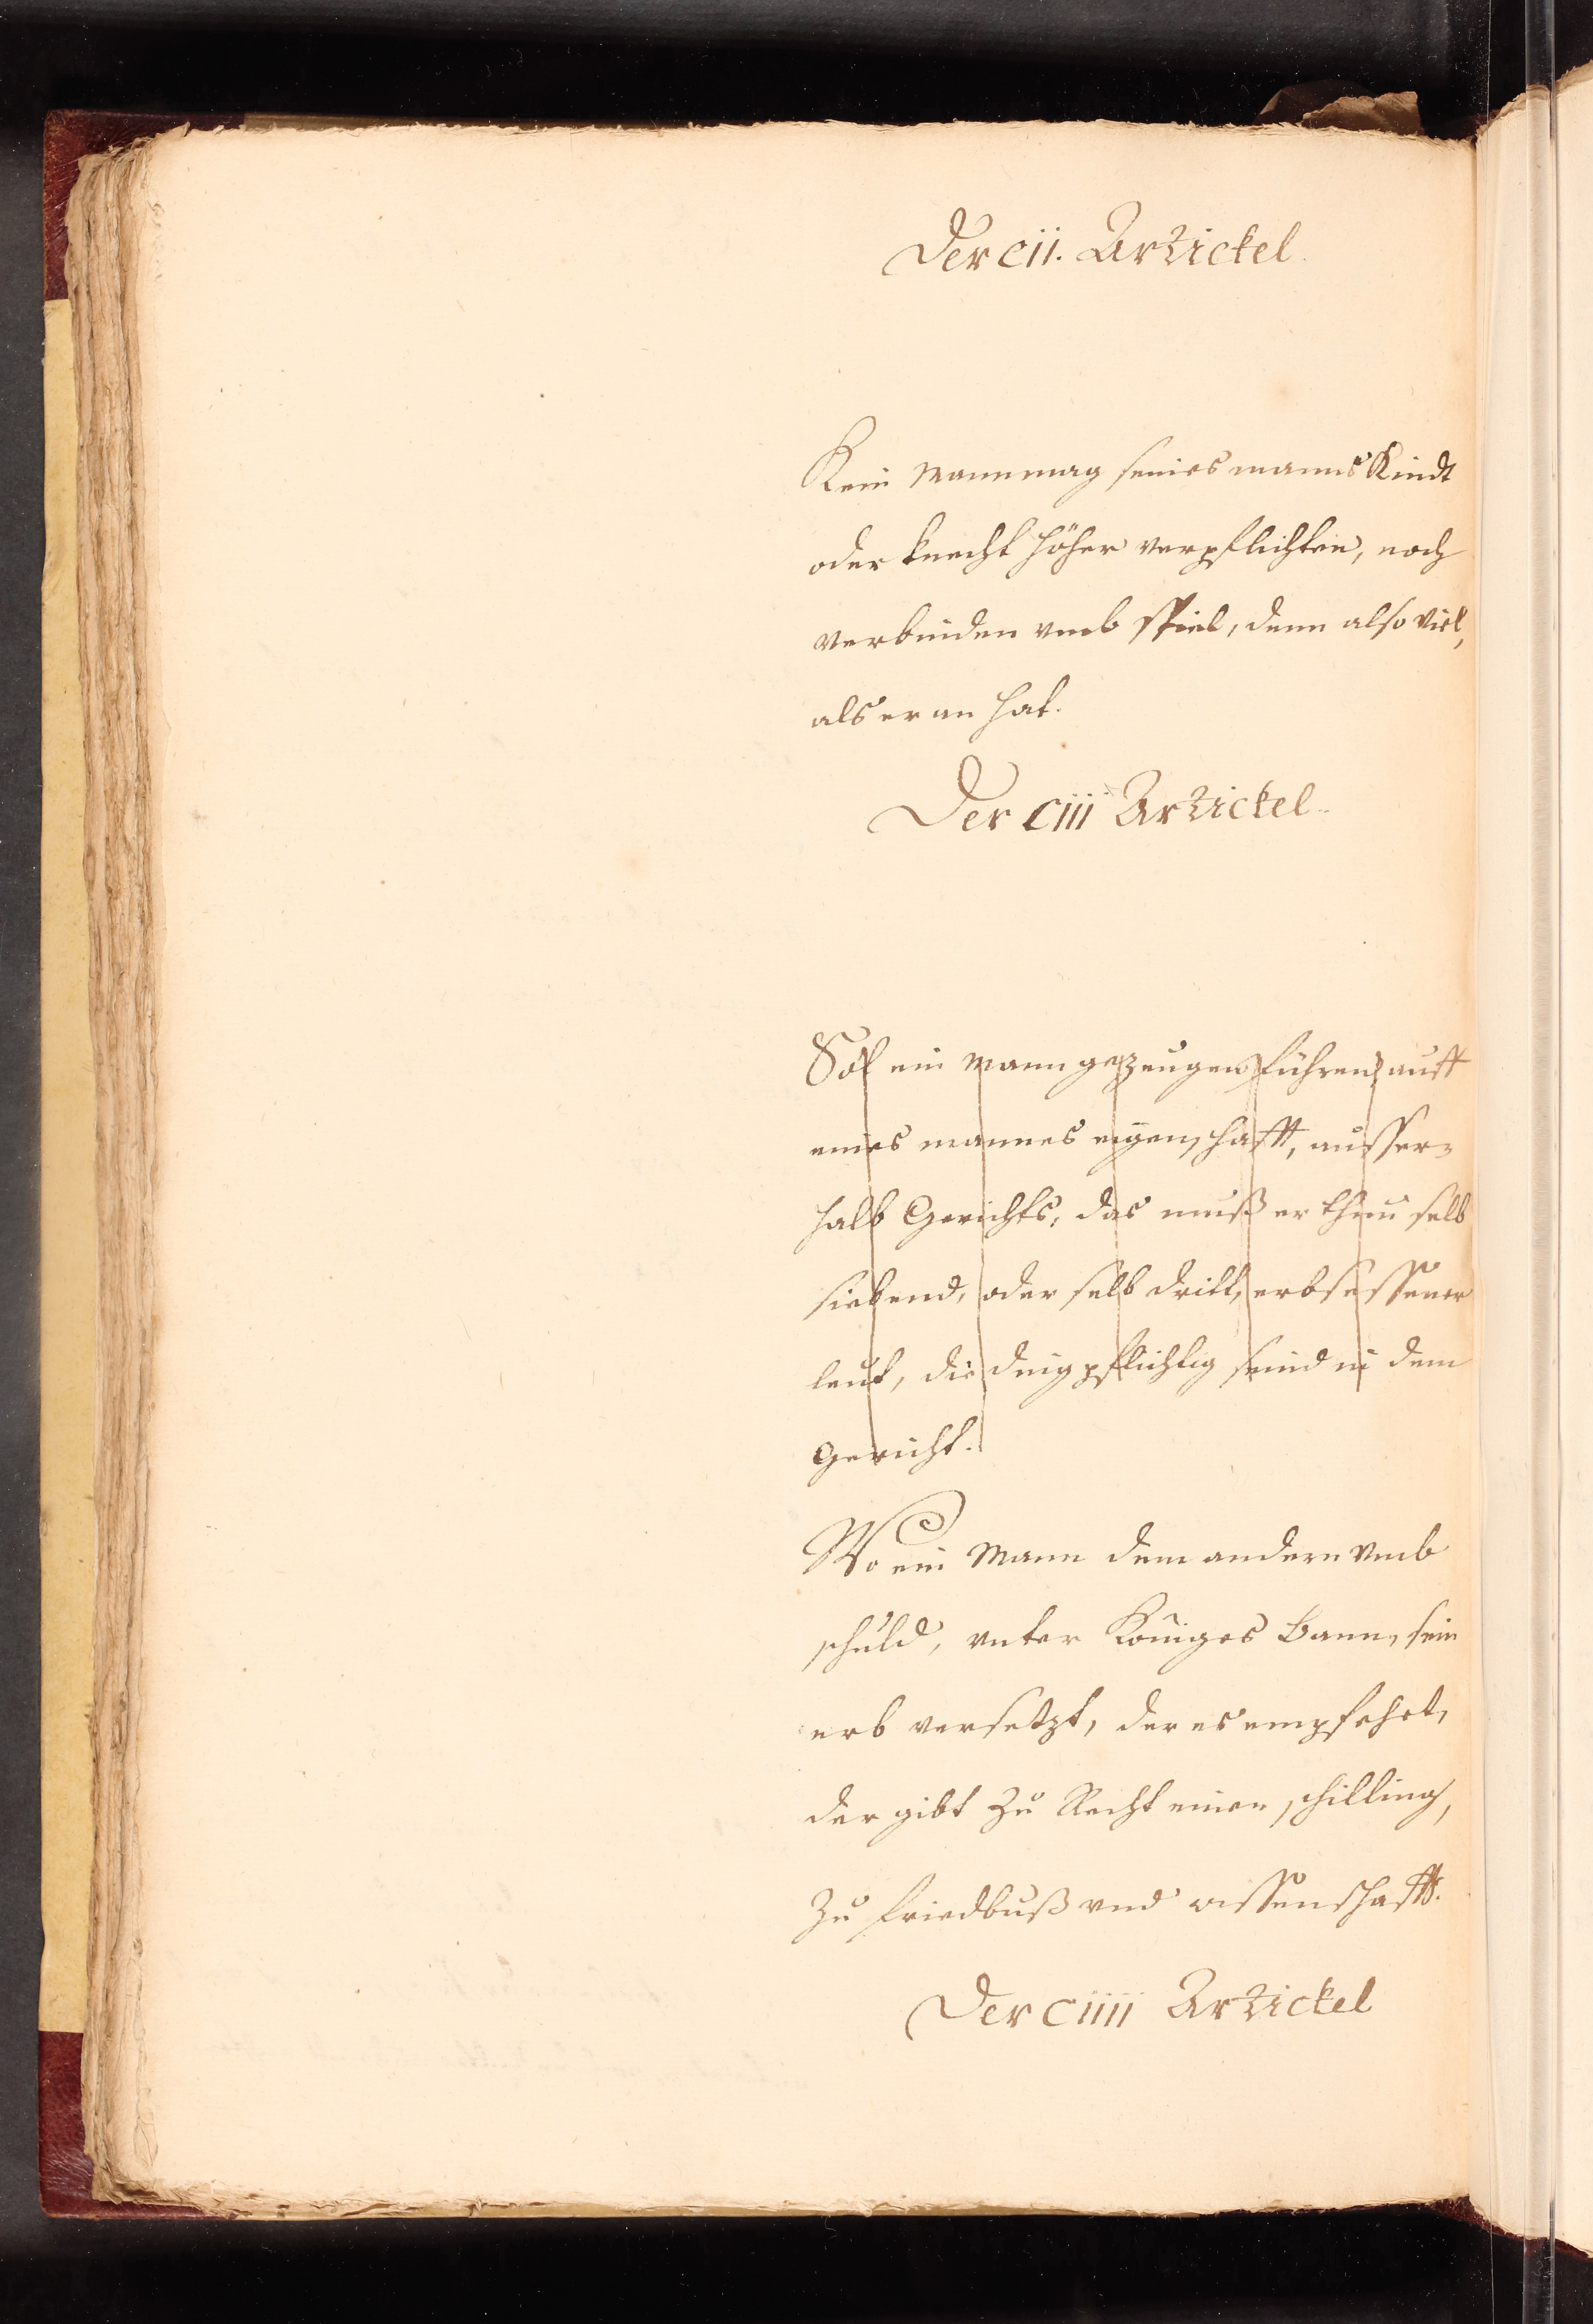 Der cii. Artickel.
Kein Mann mag seines manns Kindt
oder knecht höher verpflichten, noch
verbinden vmb spiel, denn also viel,
als er an hat.
Der ciii Artickel.
Sol ein Mann gezeugen führen auff
eines mannes eigenschafft, ausser=
halb Gerichts, das muß er thun selb
siebend, oder selb dritt, erbsessener
leut, die dingpflichtig seind in dem
Gericht.
Wo ein Mann dem andern vmb
schuld, vnter Königes Bann, sein
erb versetzt, der es empfehet,
der gibt zu Recht einen schilling,
zu friedbuß vnd wissenschafft.
Der ciiii Artickel